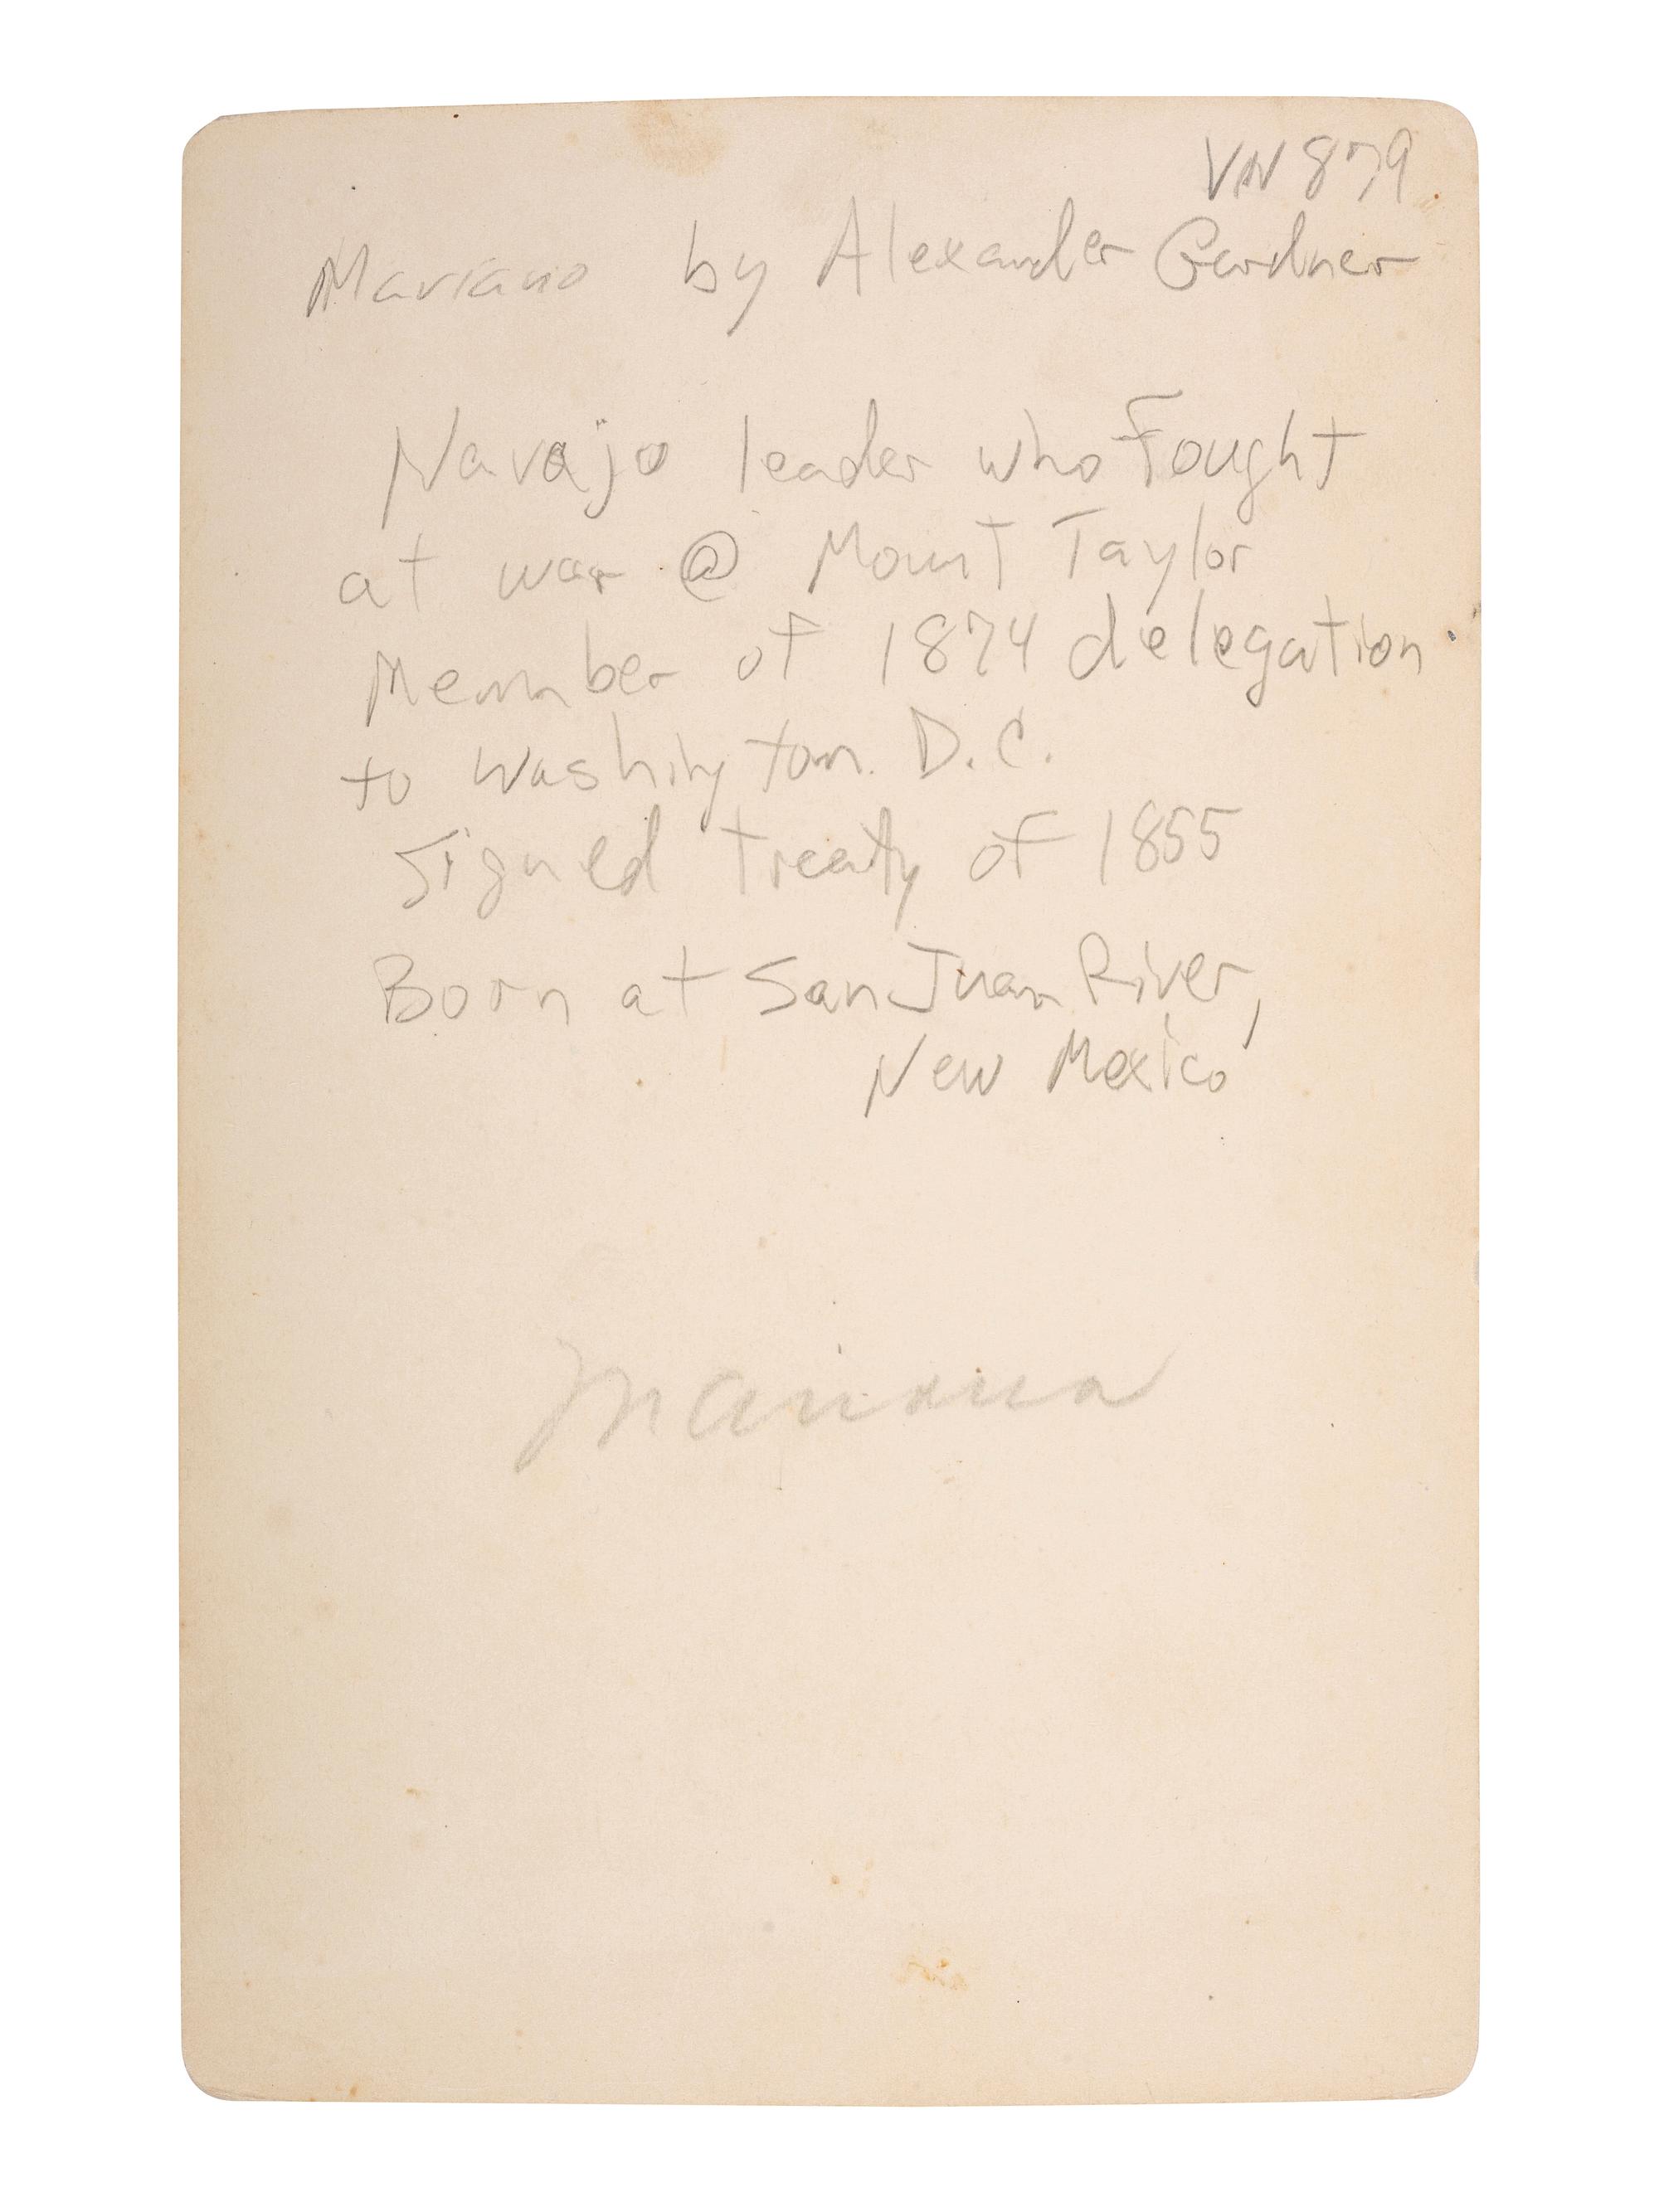 VN 879
Mariano by Alexander Gardner
Navajo leader who Fought
at war @ Mount Taylor
Member of 1874 delegation
to Washington D.C.
Signed treaty of 1855
Born at San Juan River,
New Mexico
Mariana